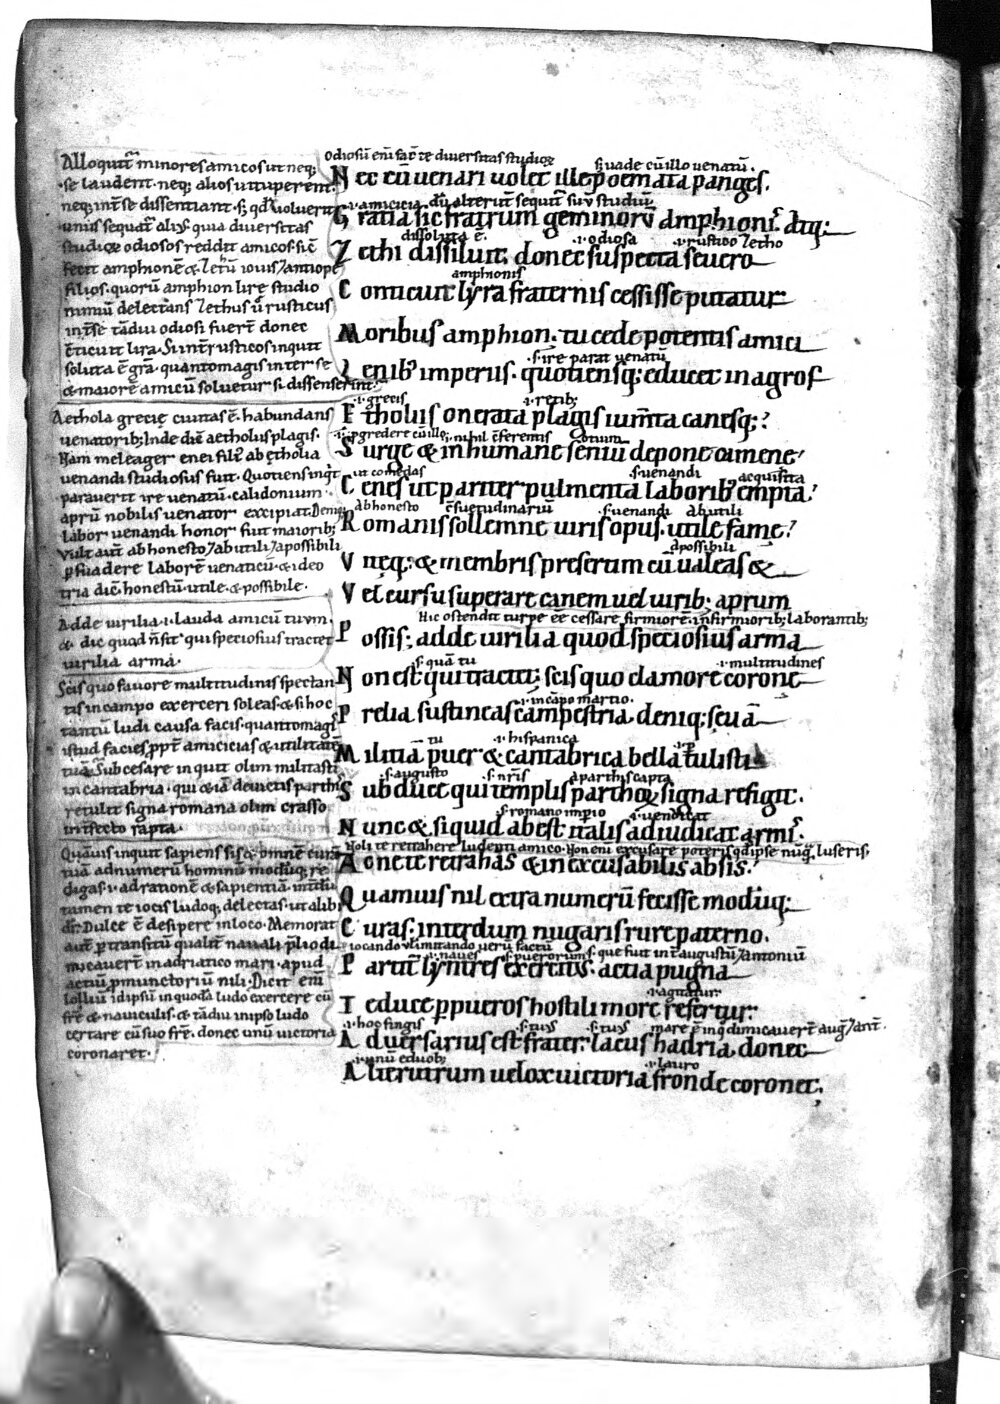 Alloquit̄ minores amicos ut neq;
se laudent. neq; alios uituperent.
neq; int̄ se dissentiant. sꝫ qd̄ uoluerit
unus sequat̄ alius. quia diuersitas
studioꝝ odiosos reddit amicos. sic̄
fecit amphionē & zethū iouis ⁊ antiope
filios. quorū amphion lire studio
nimiū delectans. zethus ū rusticus
int̄ se tādiu odiosi fuert̄ donec
cticuit lira. Si int̄ rusticos inquit
soluta ē gr̄a. quanto magis inter se
& maiorē amicū soluetur si dissenserint.
Aethola greciē ciuitas ē. habundans
uenatorib; Inde dic̄ aetholis plagis.
Nam meleager enei filiꝰ ab ethiolia
uenandi studiosus fuit. Quotiens inqt
parauerit ire uenatū. calidonium
aprū nobilis uenator excipiat. Deniq;
labor uenandi honor fuit maiorib;
Vult aut̄ ab honesto ⁊ ab utili ⁊ a possibili
ꝑsuadere laborē uenaticū. & ideo
tria dic̄. honestū. utile. & possibile.
Adde uirilia .i. lauda amicū tuum
& dic quod n̄ sit qui speciosius tractet
uirilia arma.
Scis quo fauore multitudinis spectan
tis in campo exerceri soleas. & si hoc
tantū ludi causa facis. quanto magis
istud facies ꝓpt̄ amicicias & utilitatē
tuā. Sub cesare inquit olim militasti
in cantabria. qui & iā deuictis parthis
retulit signa romana olim crasso
int̄fecto rapta.
Quāuis inquit sapiens sis & omnē curā
tuā ad numerū hominū modūq; re
digas .i. ad rationē & sapientiā. int̄dū
tamen te iocis ludoq; delectas. ut alibi
dr̄. Dulce ē desipere in loco. Memorat
aut̄ ꝑ transitū qualit̄ nauali ꝓlio di
micauert̄ in adriatico mari. apud
actiū ꝓmunctoriū nili. Dicit enī
lolliū id ipsū in quodā ludo exercere cū
fr̄e & nauiculis. & tādiu in ipso ludo
certare cū suo fr̄e. donec unū uictoria
coronaret.
Odiosū enī facit te diuersitas studioꝝ
sꝫ uade cū illo uenatū.
Nec cū uenari uolet ille poemata panges.
.i. amicicia dū alterut̄ sequit̄ suū studiū
Gratia sic fratrum geminorū Amphionis atq;
dissoluta ē. .i. odiosa .i. rustico zetho
Zethi dissiluit; donec suspecta seuero
amphionis
Conticuit lyra fraternis cessisse putatur
Moribus amphion. tu cede potentis amici
.s. ire parat uenatū
Lenibꝰ imperiis. quotiensq; educet in agros
.i. grecis .i. retib;
Etholiis onerata plagis iumta canesq;
.i. ꝓgredere cū illo .i. nihil c̄ferentis otium
Surge & inhumane senium depone camene
ut comedas .s. uenandi acquisita
Cenes ut pariter pulmenta laboribꝰ empta
ab honesto c̄suetudinariū .s. uenandi ab utili
Romanis sollemne uiris opus. utile fame
a possibili
Viteq; & membris presertim cū ualeas &
Vel cursu superare canem uel uirib; aprum
Hic ostendit turpe ēē cessare firmiorē. infirmiorib; laborantib;
Possis; adde uirilia quod speciosius arma
.s. quā tu .i. multitudines
Non est qui tractet; scis quo clamore corone
.i. in cāpo martio.
Prelia sustineas campestria. deniq; seuā
tu .i. hispanica
Militiā puer & cantabrica bella tulisti
.s. augusto .s. nr̄is a parthis capta
Sub duce qui templis parthoꝝ signa refigit.
.s. romano impio .i. uendicat
Nunc & siquid abest italis adiudicat armis.
Noli te retrahere ludenti amico. Non eni excusare poteris qd̄ ipse nūq̄ luseris.
Ac ne te retrahas & inexcusabilis absis.
Quamuis nil extra numerū fecisse modūq;
Curas; interdum nugaris rure paterno.
iocando ul̄ imitando uerū factū
.i. naues .s. puerorum .s. que fuit int̄ augustū ⁊ antoniū
Partit̄ lyntres exercitus. actia pugna
.i. agitatur
Te duce ꝑ pueros hostili more refertur;
.i. hos fingis .s. tuus .s. tuus mare ē in q̇ dimicauert̄ aug̃ ⁊ ant̄.
Aduersarius est frater. lacus hadria. donec
.i. unū e duob; .i. lauro
Alterutrum uelox uictoria fronde coronet;